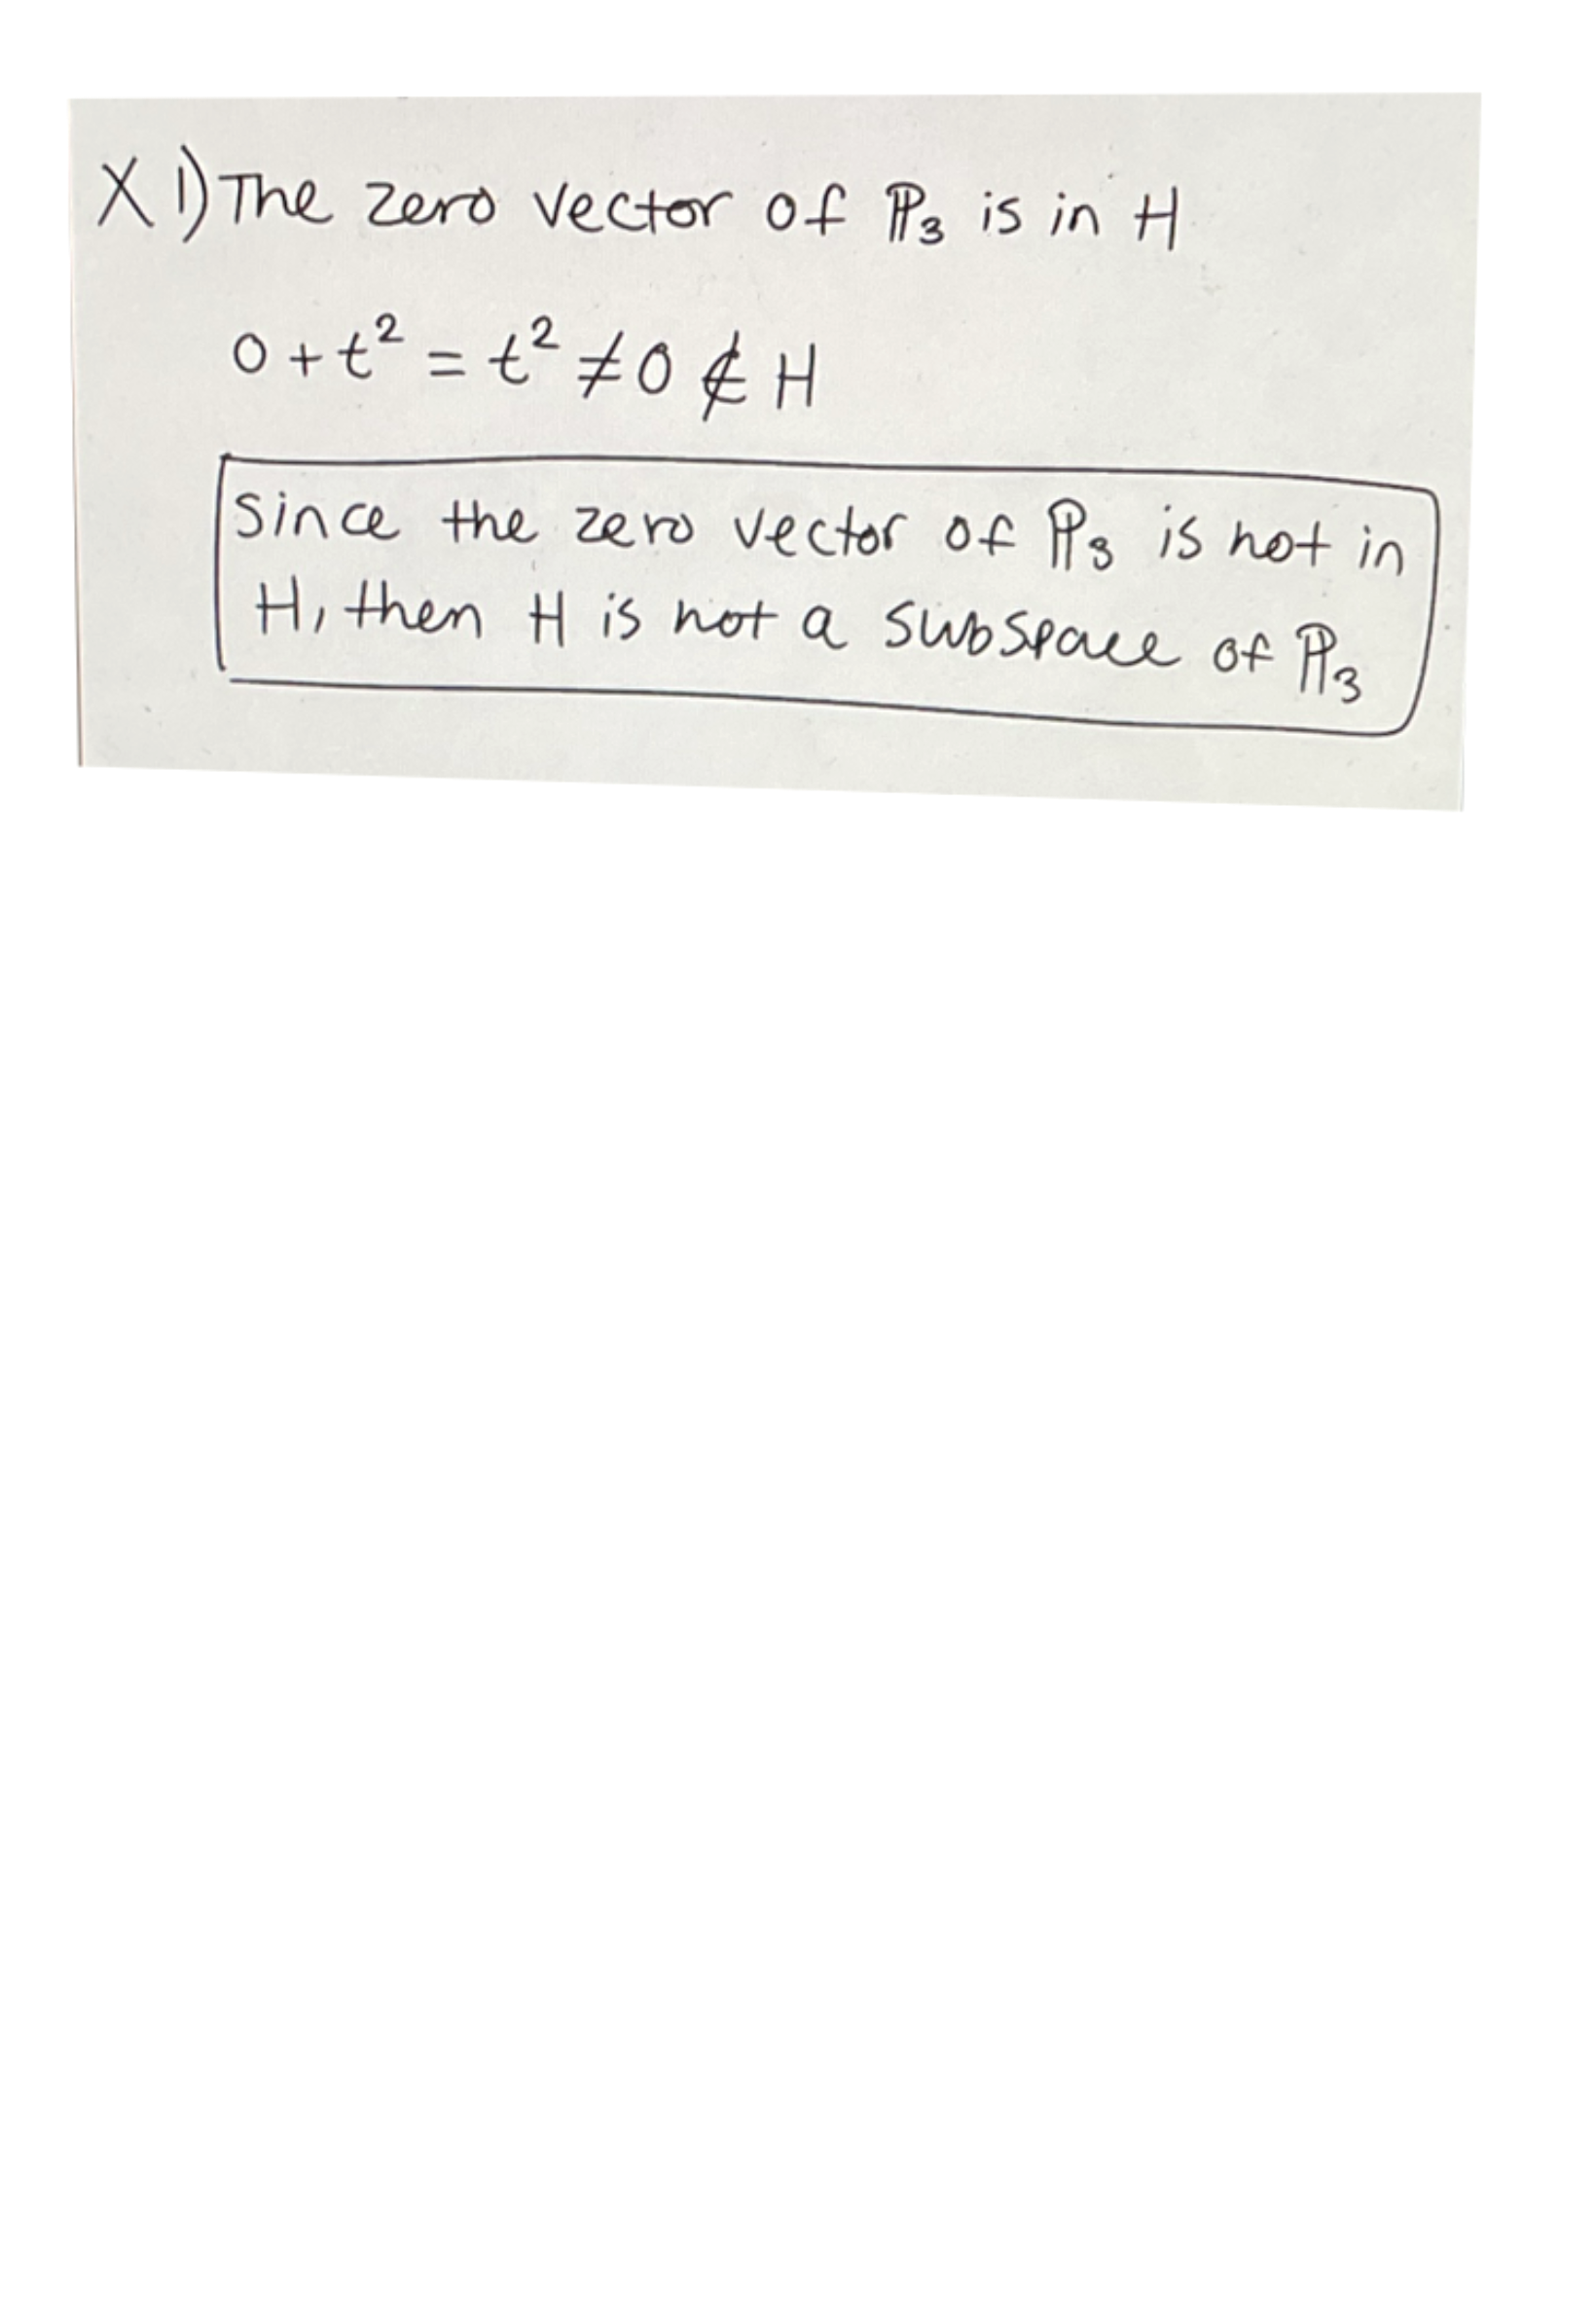 X 1) The zero vector of ℙ₃ is in H
0 + t² = t² ≠ 0 ∉ H
Since the zero vector of ℙ₃ is not in
H, then H is not a subspace of ℙ₃